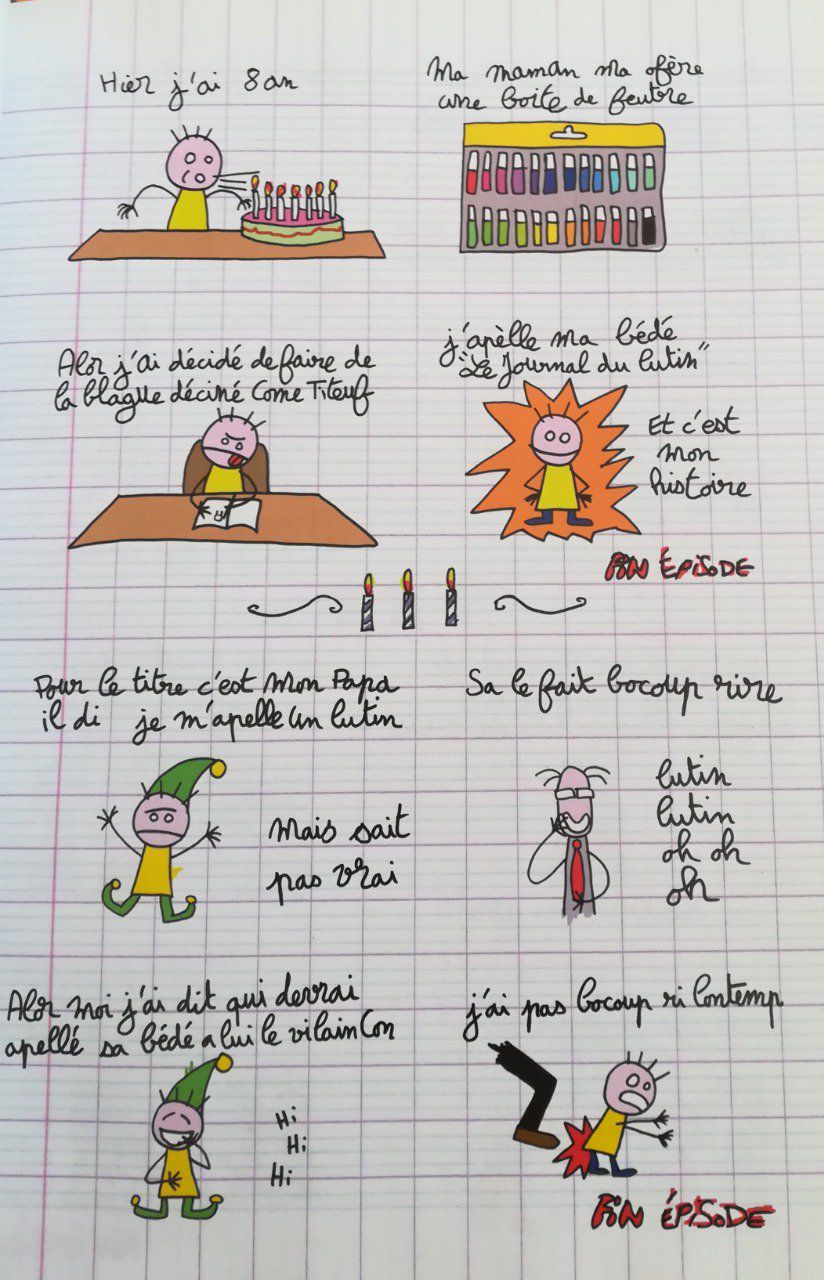 Hier j'ai 8 an
Ma maman ma ofère
une boite de feutre
Alor j'ai décidé de faire de
la blague déciné Come Titeuf
j'apèlle ma bédé
"Le Journal du lutin"
Et c'est
mon
histoire
FIN ÉPISODE
Pour le titre c'est Mon Papa
il di je m'apelle un lutin
Mais sait
pas vrai
Sa le fait bocoup rire
lutin
lutin
oh oh
oh
Alor moi j'ai dit qui devrai
apellé sa bédé a lui le vilain Con
Hi
Hi
Hi
j'ai pas bocoup ri lontemp
FIN ÉPISODE